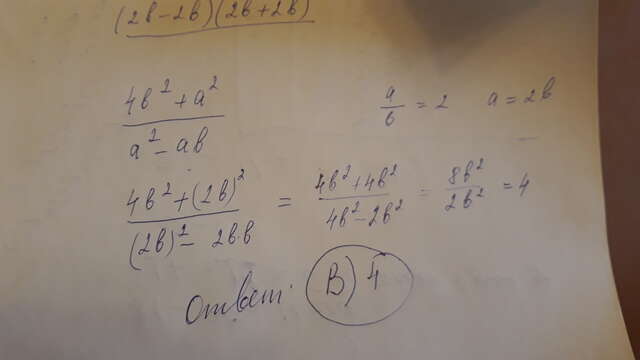 (2b-2b)(2b+2b)
a/b = 2 a = 2b
4b² + a²
a² - ab
4b² + (2b)² / (2b)² - 2b·b = 4b² + 4b² / 4b² - 2b² = 8b² / 2b² = 4
Ответ: B) 4